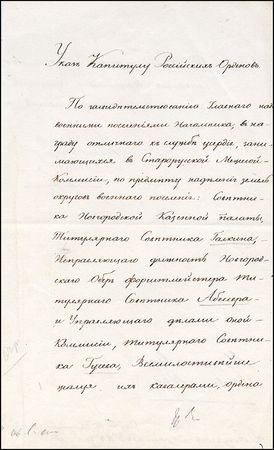 Указъ Капитулу Россійскихъ Орденовъ.
По засвидѣтельствованію Главнаго надъ
военными поселеніями Начальника, въ на-
граду отличнаго къ службѣ усердія, зани-
мающихся въ Старорусской Межевой
Коммисіи, по предмету надѣленія землею
округовъ военнаго поселенія: Совѣтни-
ка Новгородской Казенной палаты,
Титулярнаго Совѣтника Галкина,
Исправляющаго должность Новгород-
скаго Оберъ форштмейстера Ти-
тулярнаго Совѣтника
и Управляющаго дѣлами оной
Коммисіи, Титулярнаго Совѣтни-
ка Гусева, Всемилостивѣйше
жалуя ихъ кавалерами, ордена